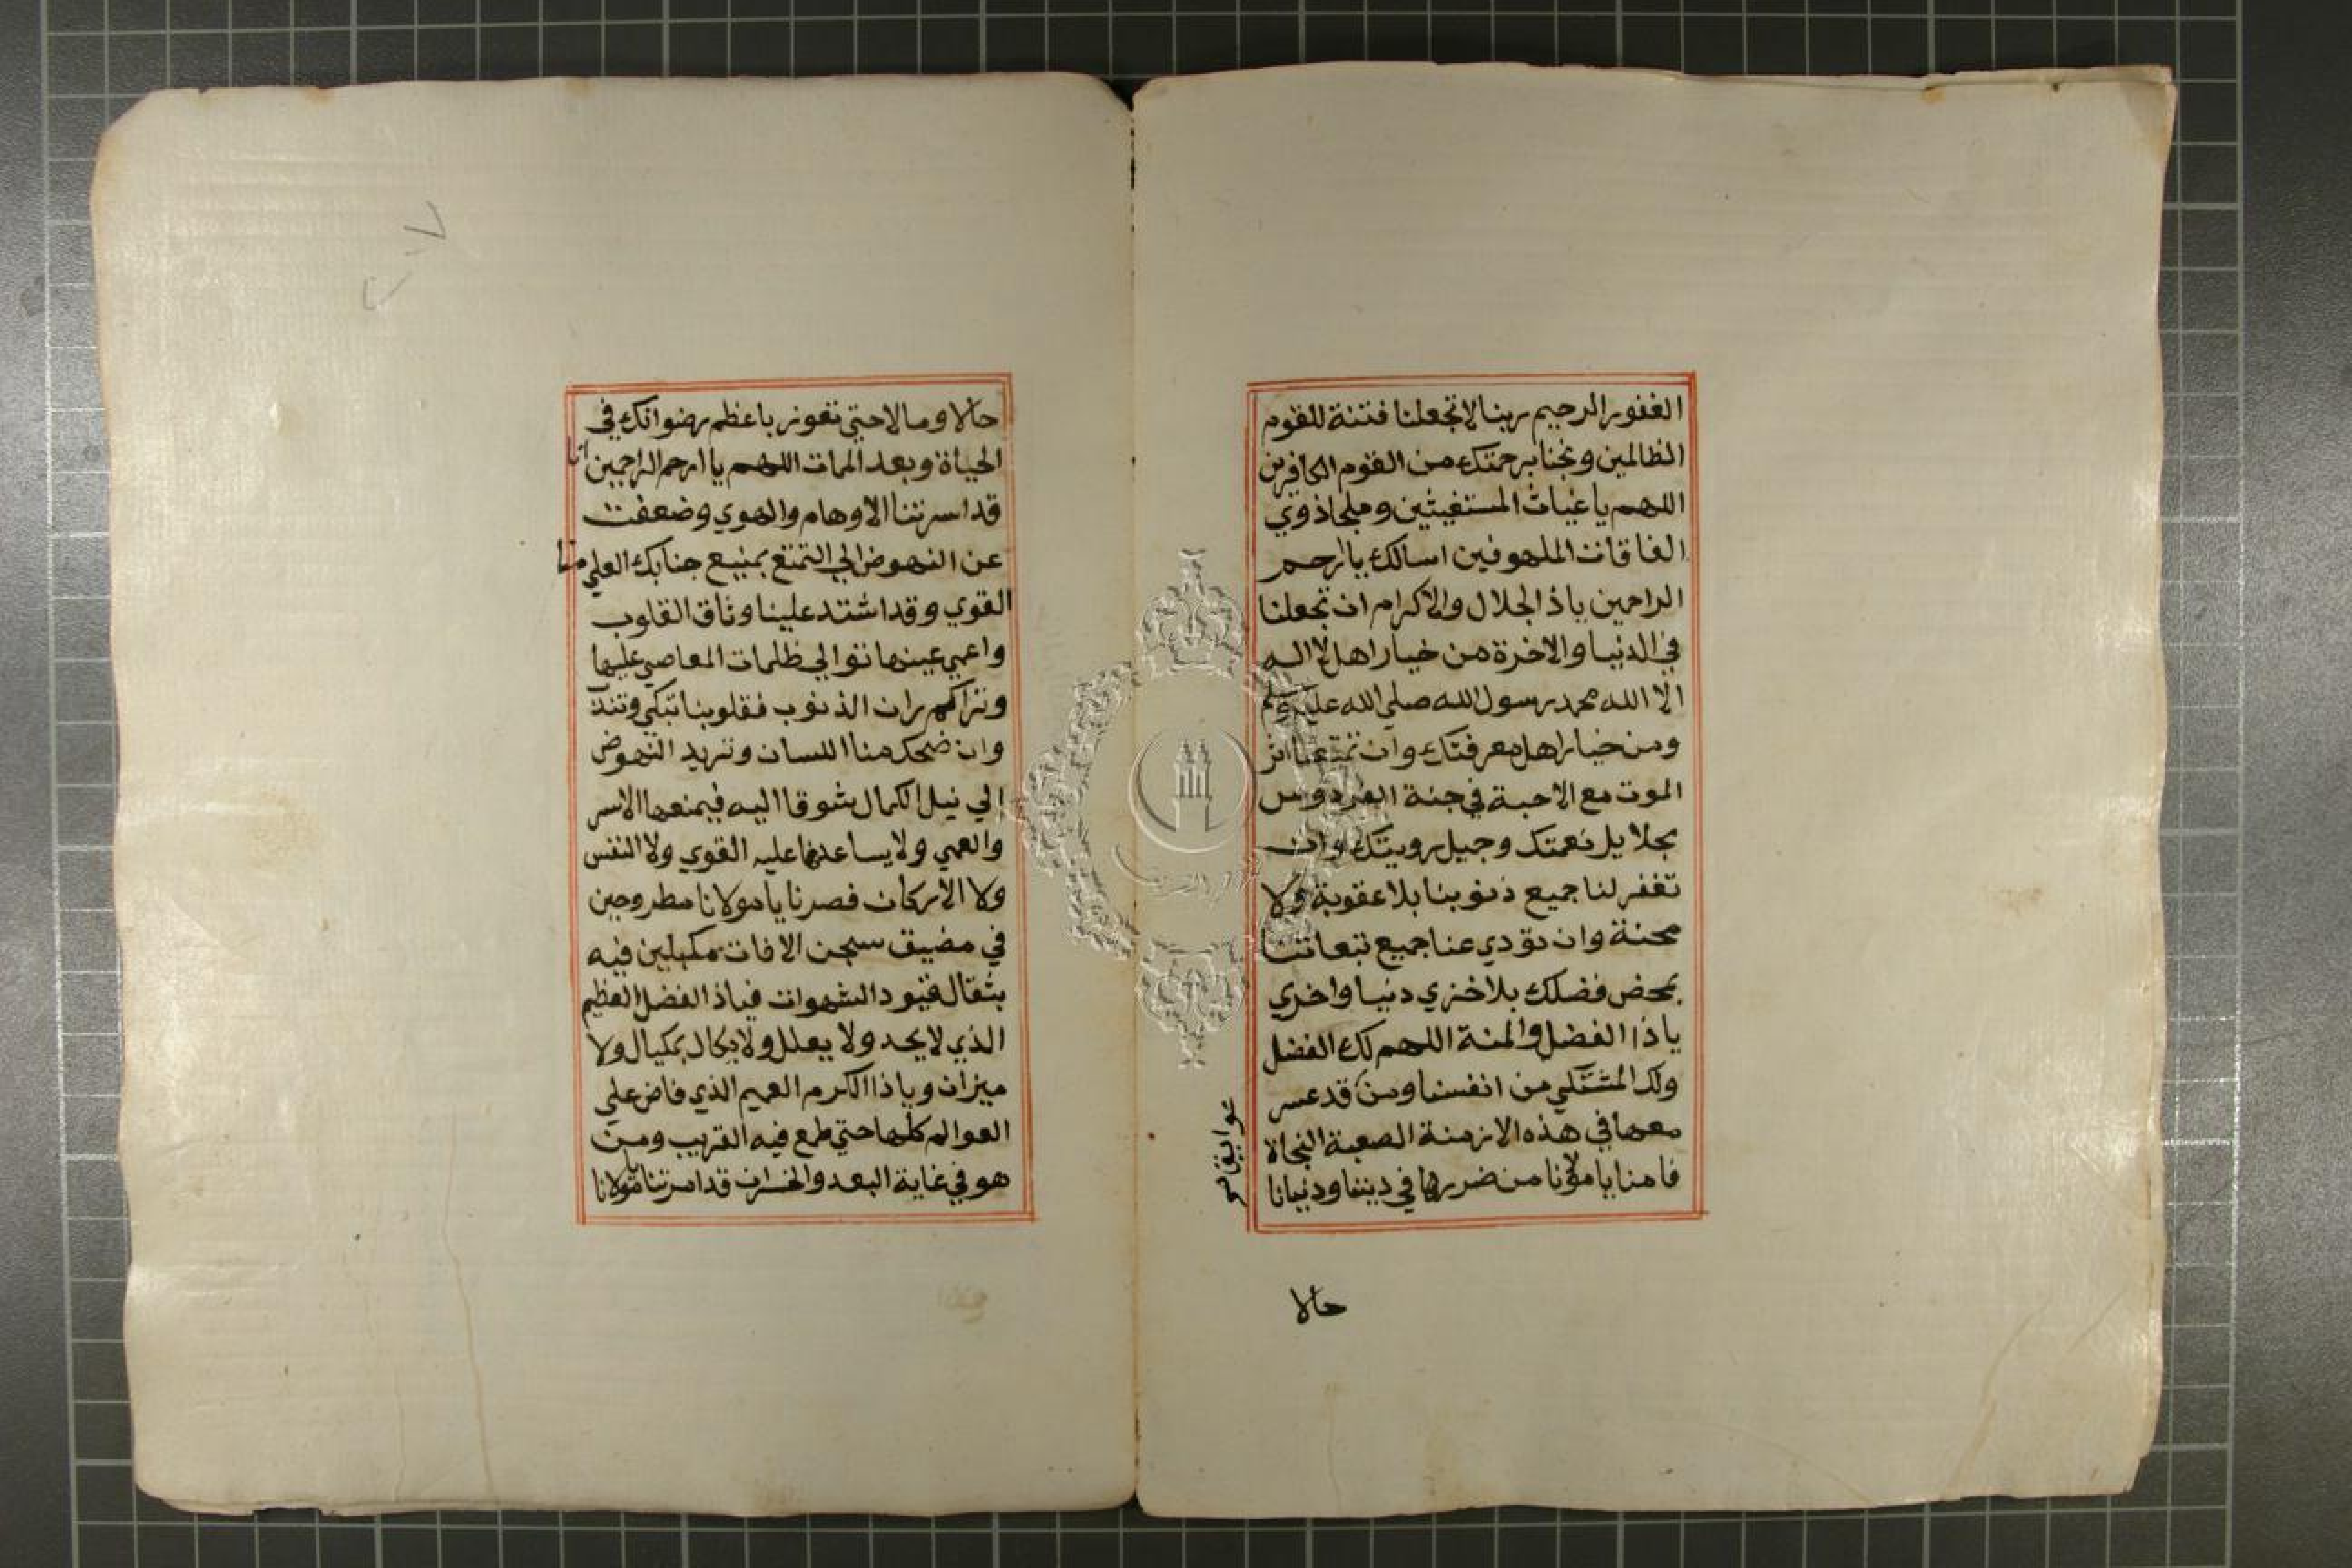 الغفور الرحيم ربنا لا تجعلنا فتنة للقوم
الظالمين ونجنا برحمتك من القوم الكافرين
اللهم يا غياث المستغيثين وملجا ذوي
الفاقات الملهوفين اسالك يا ارحم
الراحمين ياذا الجلال والاكرام ان تجعلنا
في الدنيا والاخرة من خيار اهل لا اله
الا الله محمد رسول الله صلي الله عليه وسلم
ومن خيار اهل معرفتك وان تمتعنا اثر
الموت مع الاحبة في جنة الفردوس
بجلايل نعمتك وجميل رويتك وان
تغفر لنا جميع ذنوبنا بلا عقوبة ولا
محنة وان تؤدي عنا جميع تبعاتنا
بمحض فضلك بلا خزي دنيا واخري
يا ذا الفضل والمنة اللهم لك الفضل
ولك المشتكي من انفسنا ومن قد عسر
معها في هذه الازمنة الصعبة النجاة
فامنا يا مولانا من ضررها في ديننا ودنيانا
حالا
حالا ومالا حتي نفوز باعظم رضوانك في
الحياة وبعد الممات اللهم يا ارحم الراحمين انا
قد اسرتنا الاوهام والهوي وضعفت
عن النهوض الي التمتع بمنيع جنابك العلي منا
القوي وقد اشتد علينا وثاق القلوب
واعمي عينها توالي ظلمات المعاصي عليها
وتراكم ران الذنوب فقلوبنا تبكي وتندب
وان ضحك منا اللسان وتريد النهوض
الي نيل الكمال شوقا اليه فيمنعها الاسر
والعمي ولا يساعدها عليه القوي ولا النفس
ولا الاركان فصرنا يا مولانا مطروحين
في مضيق سجن الافات مكبلين فيه
بثقال قيود الشهوات فياذا الفضل العظيم
الذي لا يحد ولا يعلل ولا يكال بمكيال ولا
ميزان ويا ذا الكرم العميم الذي فاض علي
العوالم كلها حتي طمع فيه القريب ومن
هو في غاية البعد والخسران قد اسرتنا يا مولانا